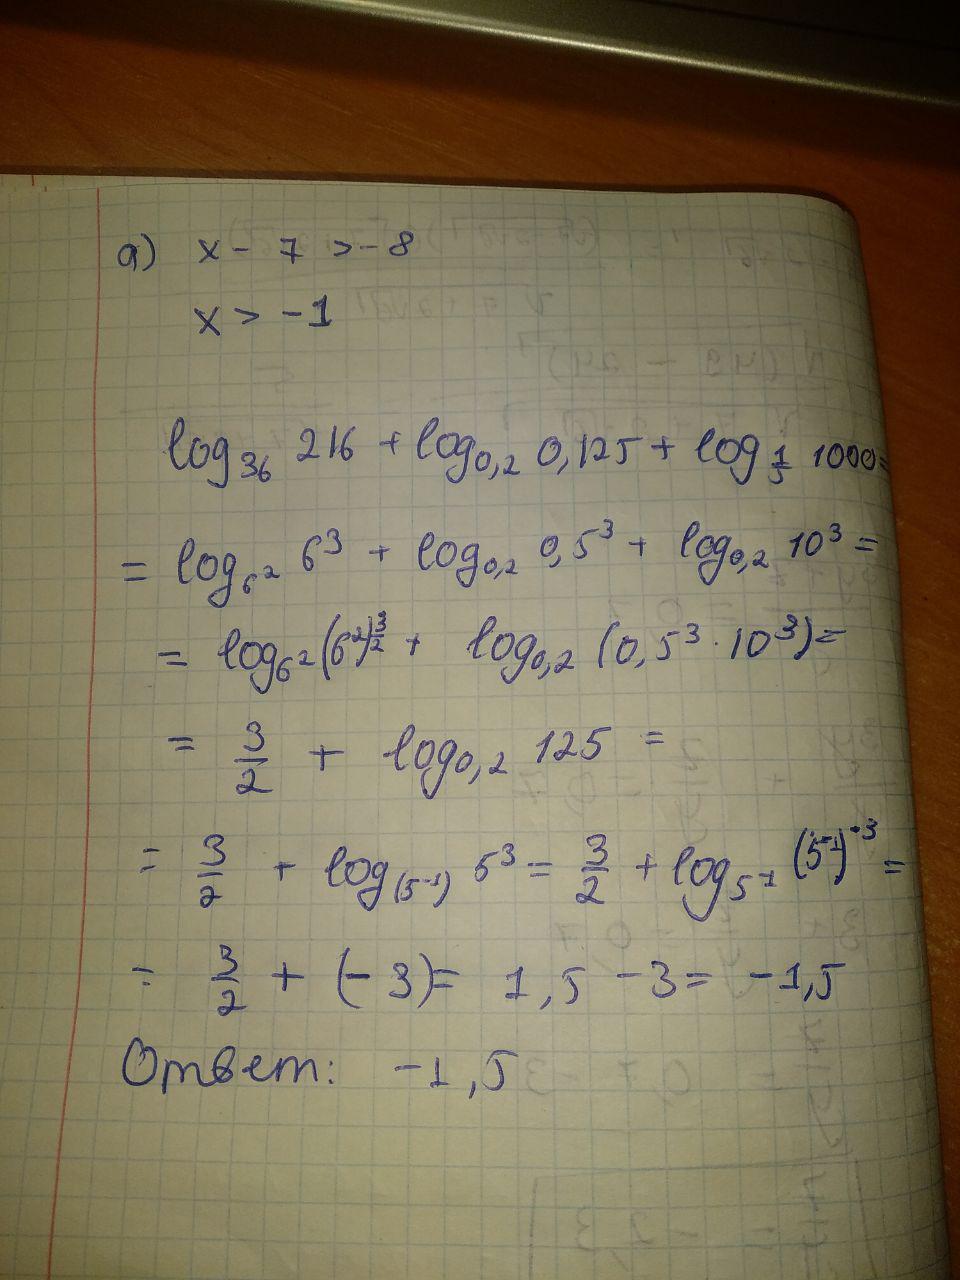 а) x - 7 > -8
x > -1
log₃₆ 216 + log₀,₂ 0,125 + log_(1/5) 1000 =
= log_(6²) 6³ + log₀,₂ 0,5³ + log₀,₂ 10³ =
= log_(6²) (6²)^(3/2) + log₀,₂ (0,5³ · 10³) =
= 3/2 + log₀,₂ 125 =
= 3/2 + log_(5⁻¹) 5³ = 3/2 + log_(5⁻¹) (5⁻¹)⁻³ =
= 3/2 + (-3) = 1,5 - 3 = -1,5
Ответ: -1,5